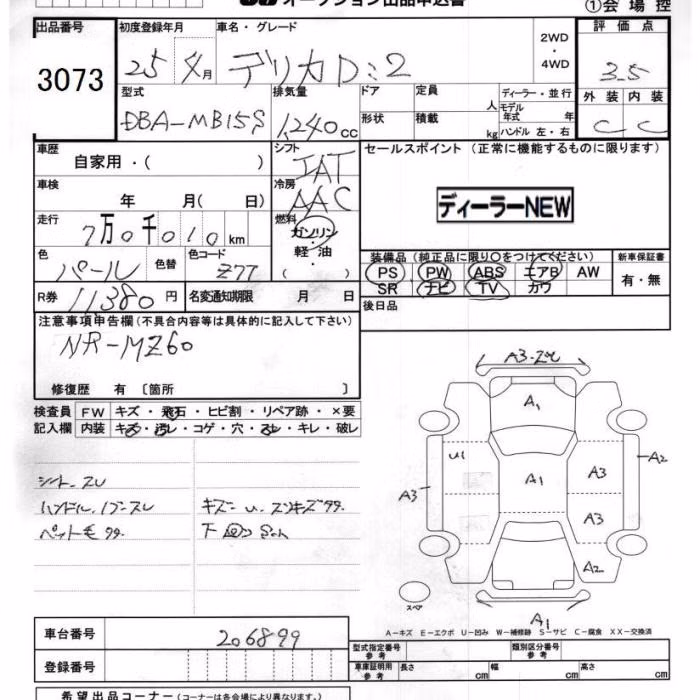 オークション出品申込書
①会場控
出品番号
3073
初度登録年月
25 年 4月
車名・グレード
デリカD:2
2WD
・
4WD
評価点
3.5
外装 内装
C C
型式
DBA-MB15S
排気量
1,240cc
ドア
定員
人
形状
積載
kg
ディーラー・並行
モデル年式 年
ハンドル 左・右
車歴
自家用・( )
シフト
IAT
冷房
AAC
車検
年 月( 日)
走行
7万0千010km
燃料
ガソリン
・
軽油
・
( )
色
パール
色替
色コード
Z7T
R券 11380円
名変通知期限 月 日
セールスポイント (正常に機能するものに限ります)
ディーラーNEW
装備品 (純正品に限り〇をつけてください)
PS PW ABS エアB AW
SR ナビ TV カワ
新車保証書
有・無
後日品
注意事項申告欄(不具合内容等は具体的に記入して下さい)
NR-MZ60
修復歴 有 〔箇所 〕
検査員記入欄
FW キズ・飛石・ヒビ割・リペア跡・×要
内装 キズ・汚レ・コゲ・穴・スレ・キレ・破レ
シート.スレ
ペット毛
キズ
A3
A1
U1
A1
A3
A2
A3
A3
A2
A1
スペア
A-キズ E-エクボ U-凹み W-補修跡 S-サビ C-腐食 XX-交換済
車台番号
206899
登録番号
型式指定番号
参考
類別区分番号
参考
車庫証明用
参考
長さ cm
幅 cm
高さ cm
希望出品コーナー (コーナーは各会場により異なります。)